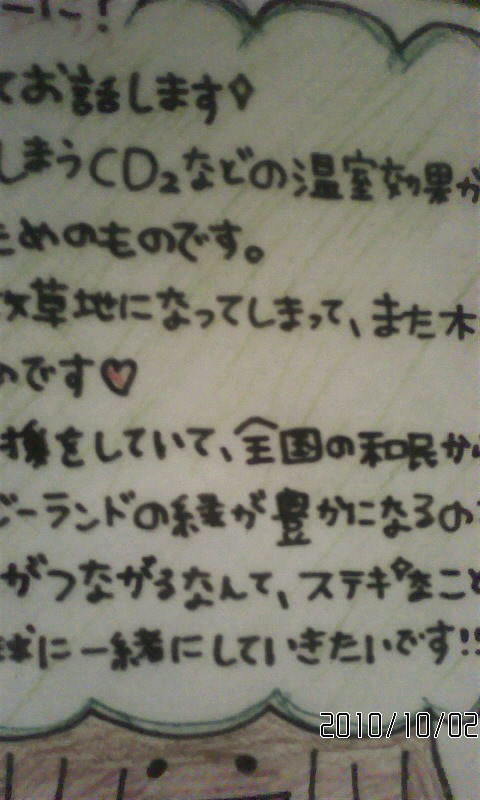 ーに！
てお話します
しまうCO₂などの温室効果が
ためのものです。
牧草地になってしまって、また木
のです♡
援をしていて、全国の和民から
ジーランドの緑が豊かになるの
がつながるなんて、ステキなこと
球に一緒にしていきたいです!!
2010/10/02